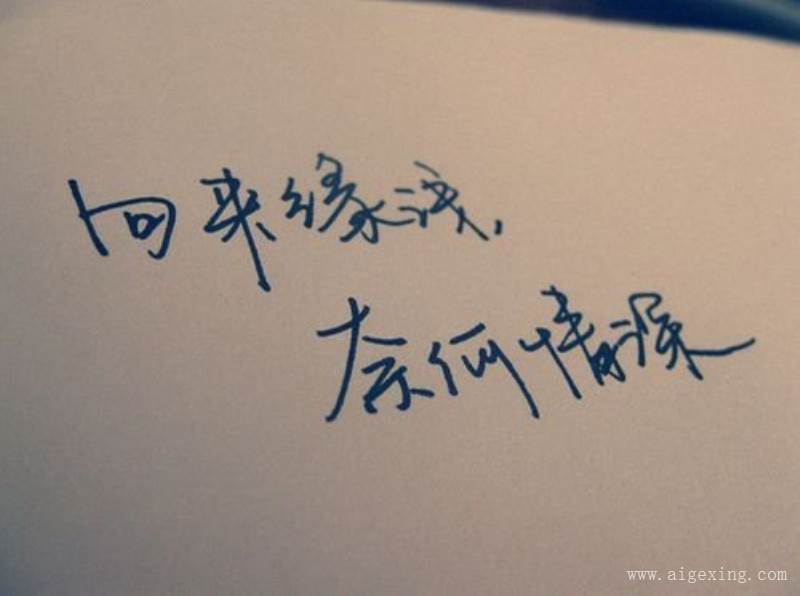 向来缘浅，
奈何情深
www.aigexing.com